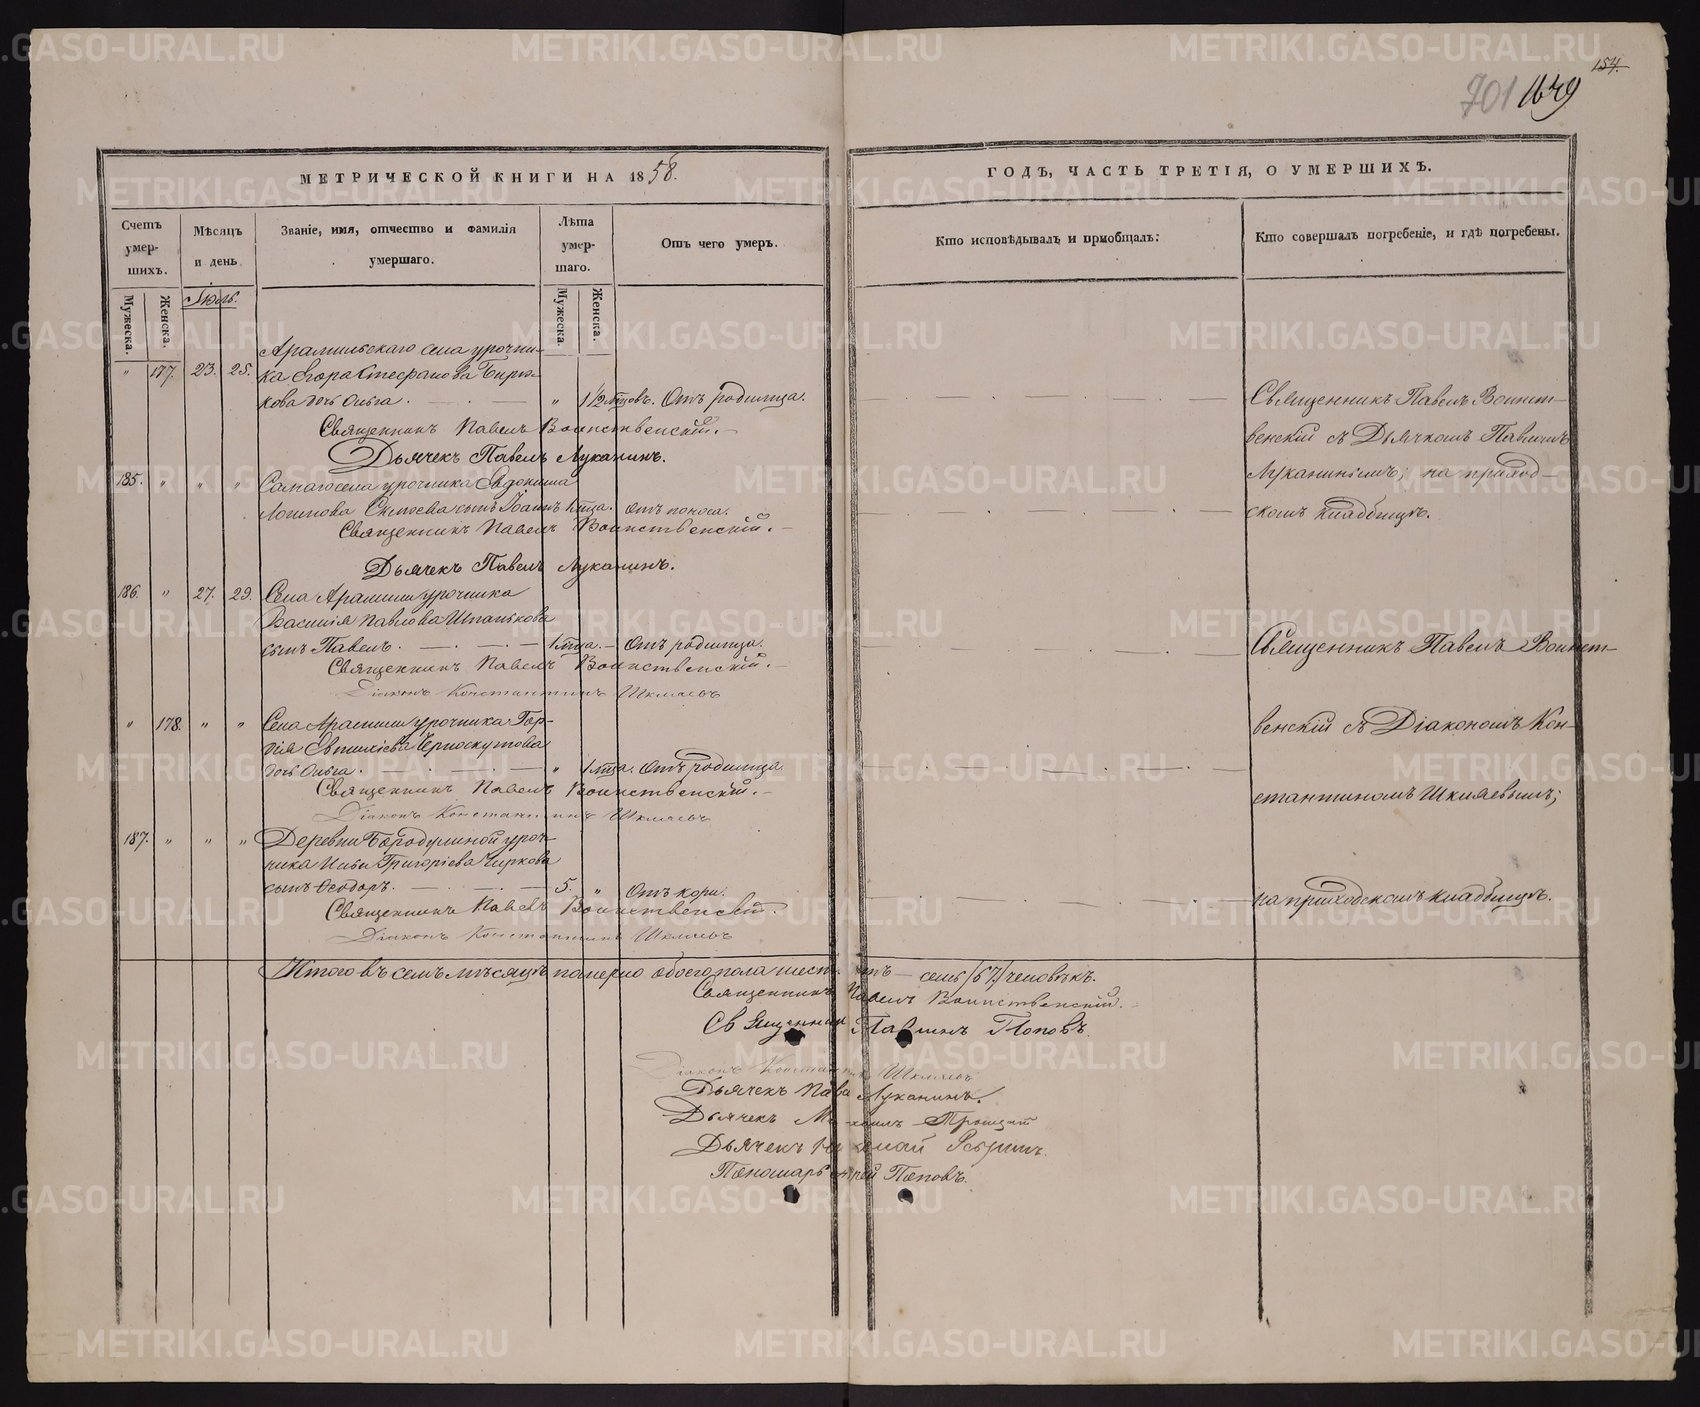 154.
701 1649
МЕТРИЧЕСКОЙ КНИГИ НА 1858.
ГОДЪ, ЧАСТЬ ТРЕТІЯ, О УМЕРШИХЪ.
Счетъ умер-шихъ.
Мѣсяцъ и день
Званіе, имя, отчество и фамилія умершаго.
Лѣта умер-шаго.
Отъ чего умеръ.
Кто исповѣдывалъ и пріобщалъ:
Кто совершалъ погребеніе, и гдѣ погребены.
Мужеска.
Женска.
Іюль.
Мужеска.
Женска.
Арамильскаго села урочни-
" 177. 23. 25. ка Егора Стефанова Бирю-
кова дочь Ольга. " 1½ мѣсяцовъ. Отъ родимца.
Священникъ Павелъ Воинственскій.
Дьячекъ Павелъ Луканинъ.
Священникъ Павелъ Воинст-
венскій съ Дьячкомъ Павломъ
Луканинымъ; на приход-
скомъ кладбищѣ.
185. " " " Самаго села урочника Евдокима
Логинова сынъ Іоаннъ 1 мѣсяца. отъ поноса.
Священникъ Павелъ Воинственскій.
Дьячекъ Павелъ Луканинъ.
186. " 27. 29. Села Арамили урочника
Василія Павлова Шпанькова
сынъ Павелъ. 1 мѣсяца. Отъ родимца.
Священникъ Павелъ Воинственскій.
Діаконъ Константинъ Шкляевъ
Священникъ Павелъ Воинст-
" 178. " " Села Арамили урочника Гор-
дія Евтихіева Черноскутова
дочь Ольга. " 1 мѣсяца. Отъ родимца.
Священникъ Павелъ Воинственскій.
Діаконъ Константинъ Шкляевъ
венскій съ Діакономъ Кон-
стантиномъ Шкляевымъ;
187. " " " Деревни Бородулиной уроч-
ника Ильи Григоріева Чиркова
сынъ Ѳеодоръ. 5. " Отъ кори.
Священникъ Павелъ Воинственскій.
Діаконъ Константинъ Шкляевъ
на приходскомъ кладбищѣ.
Итого въ семъ мѣсяцѣ померло обоего пола шестьдесятъ семь /67/ человѣкъ.
Священникъ Павелъ Воинственскій.
Священникъ Павлинъ Поповъ.
Діаконъ Константинъ Шкляевъ
Дьячекъ Павелъ Луканинъ.
Дьячекъ Михаилъ Троицкій
Дьячекъ
Пономарь Поповъ.